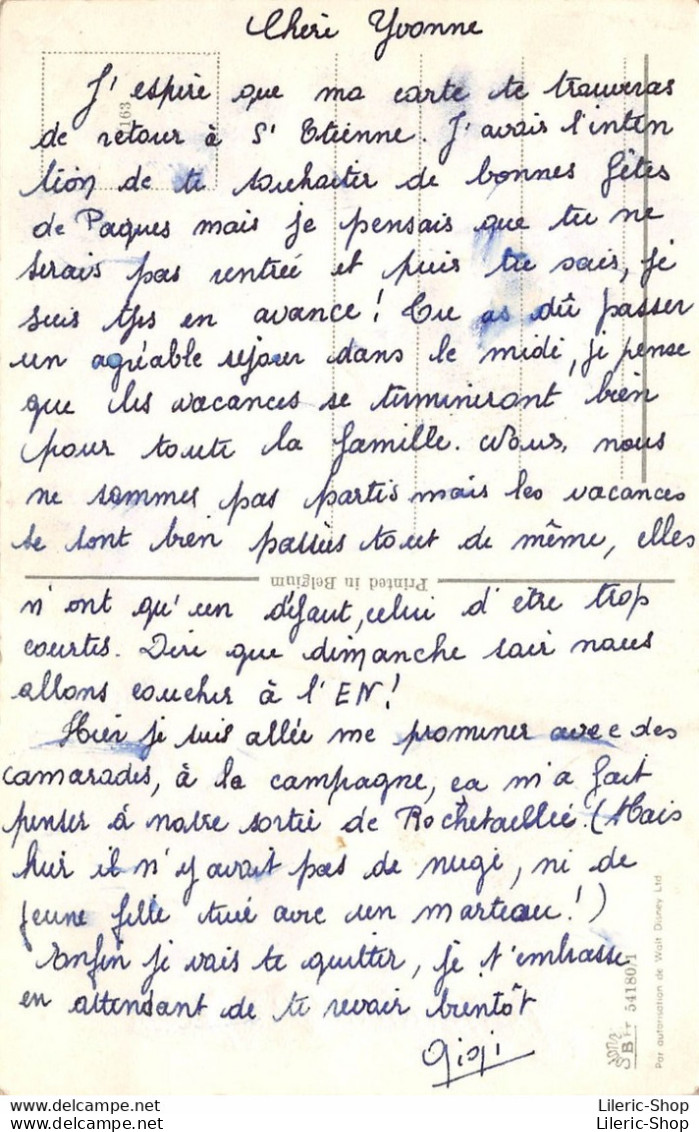 Cheri Yvonne
J'espère que ma carte te trouveras
de retour à St Etienne. J'avais l'inten
tion de te souhaiter de bonnes fêtes
de Paques mais je pensais que tu ne
serais pas rentrée et puis tu sais, je
suis tjs en avance! Tu as dû passer
un agréable séjour dans le midi, je pense
que les vacances se termineront bien
pour toute la famille. Nous, nous
ne sommes pas partis mais les vacances
se sont bien passées tout de même, elles
Printed in Belgium
n'ont qu'un défaut, celui d'être trop
courtes. Dire que dimanche soir nous
allons coucher à l'EN!
Hier je suis allée me promener avec des
camarades, à la campagne, ça m'a fait
penser à notre sortie de Rochetaillée. (Mais
hier il n'y avait pas de neige, ni de
jeune fille tué avec un marteau!)
Enfin je vais te quitter, je t'embrasse
en attendant de te revoir bientôt
Gigi
163
54180/1
Par autorisation de Walt Disney Ltd
Lileric-Shop
Lileric-Shop
Lileric-Shop
Lileric-Shop